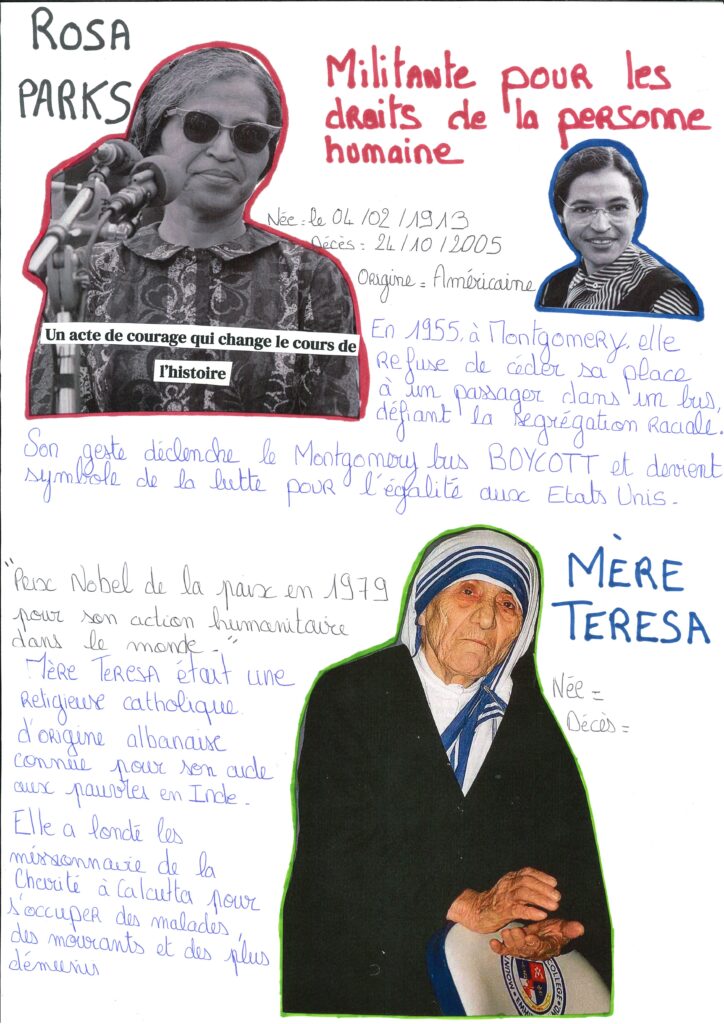 ROSA
PARKS
Militante pour les
droits de la personne
humaine
Née = le 04/02/1913
Décès = 24/10/2005
Origine = Américaine
Un acte de courage qui change le cours de
l'histoire
En 1955, à Montgomery, elle
refuse de céder sa place
à un passager dans un bus,
défiant la segrégation raciale.
Son geste déclenche le Montgomery bus BOYCOTT et devient
symbole de la lutte pour l'égalité aux Etats Unis.
MÈRE
TERESA
"Prix Nobel de la paix en 1979
pour son action humanitaire
dans le monde."
Née =
Décès =
Mère Teresa était une
religieuse catholique
d'origine albanaise
connue pour son aide
aux pauvres en Inde.
Elle a fondé les
missionnaire de la
Charité à Calcutta pour
s'occuper des malades,
des mourants et des plus
démunis
COLLEGE